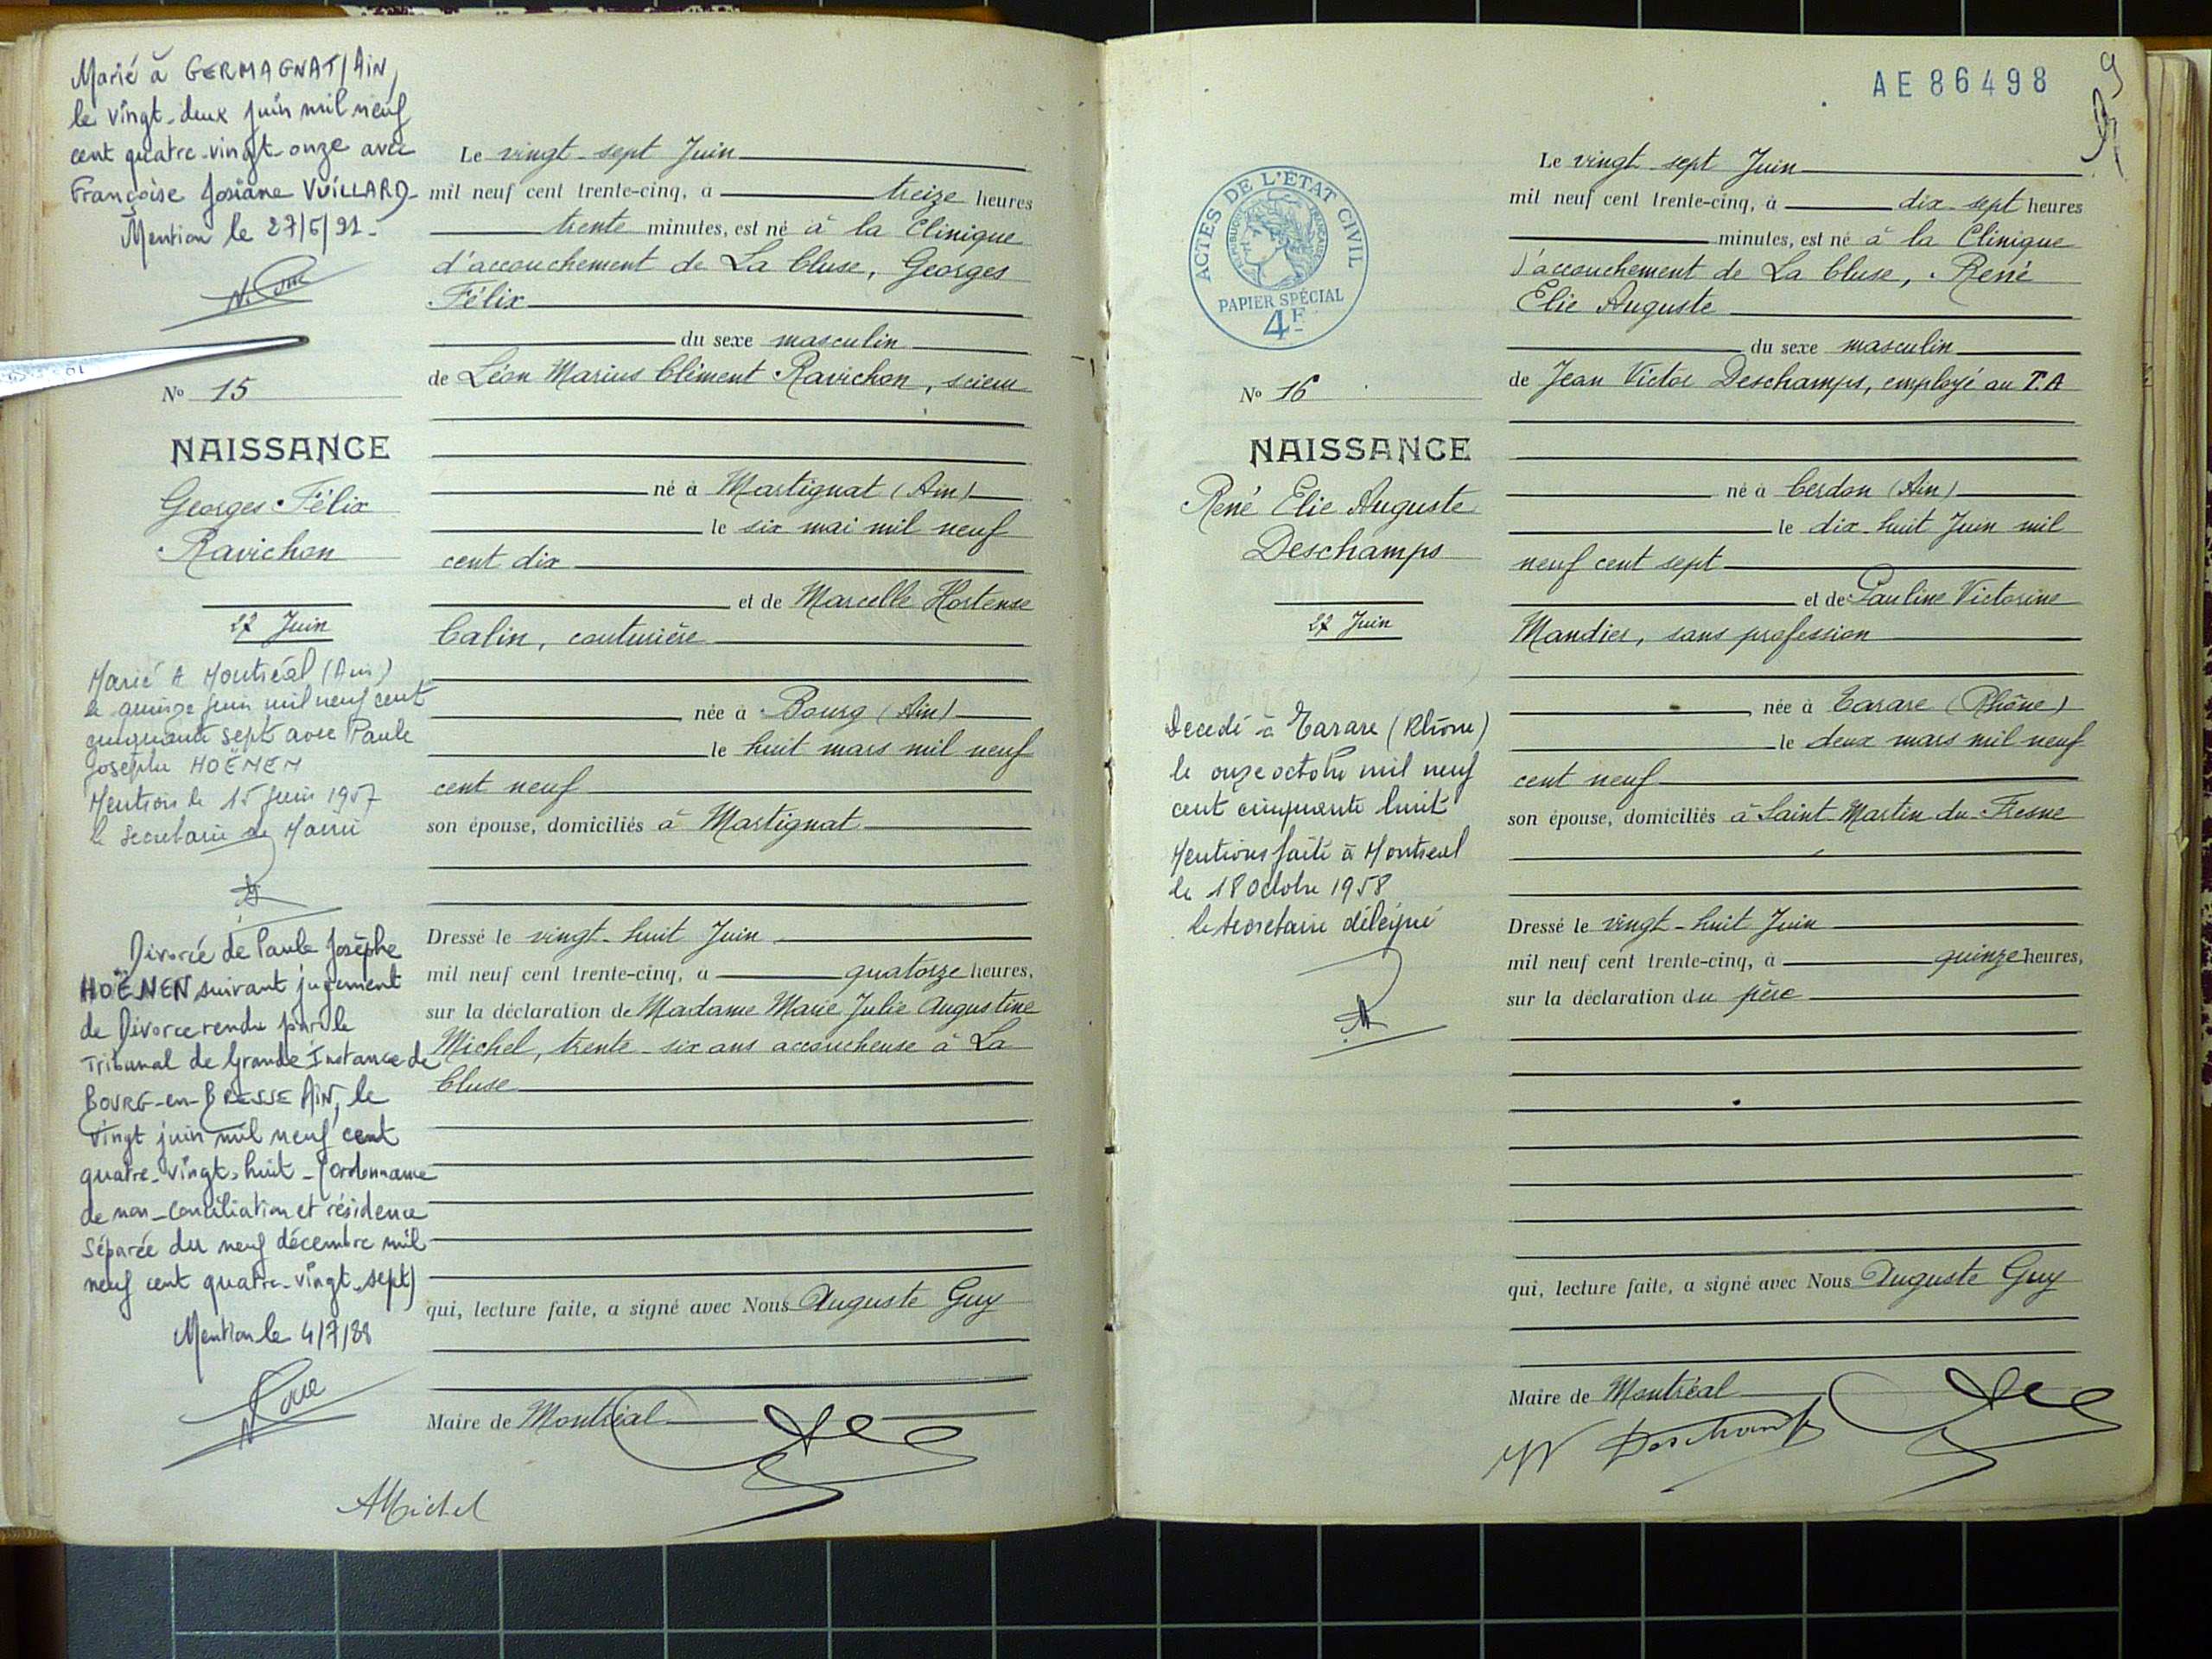 Marié à GERMAGNAT/AiN,
le vingt-deux juin mil neuf
cent quatre-vingt-onze avec
Françoise Josiane VUILLARD-
Mention le 27/6/91-
No 15
NAISSANCE
Georges Félix
Ravichon
27 Juin
Marié A Montréal (Ain)
le quinze juin mil neuf cent
cinquante sept avec Paule
Josèphe HOËNEN
Mention le 15 juin 1957
le secretaire de Mairie
Divorcé de Paule Josèphe
HOËNEN suivant jugement
de Divorce rendu par le
Tribunal de Grande Instance de
BOURG-en-BRESSE AiN, le
vingt juin mil neuf cent
quatre-vingt-huit - (ordonnance
de non-conciliation et résidence
séparée du neuf décembre mil
neuf cent quatre-vingt-sept)
Mention le 4/7/88
Le vingt-sept Juin
mil neuf cent trente-cinq, à treize heures
trente minutes, est né à la Clinique
d'accouchement de La Cluse, Georges
Félix
du sexe masculin
de Léon Marius Clément Ravichon, scieur
né à Martignat (Ain)
le six mai mil neuf
cent dix
et de Marcelle Hortense
Calin, couturière
née à Bourg (Ain)
le huit mars mil neuf
cent neuf
son épouse, domiciliés à Martignat
Dressé le vingt-huit Juin
mil neuf cent trente-cinq, à quatorze heures,
sur la déclaration de Madame Marie Julie Augustine
Michel, trente-six ans accoucheuse à La
Cluse
qui, lecture faite, a signé avec Nous Auguste Guy
Maire de Montréal
AMichel
AE86498
9
ACTES DE L'ÉTAT CIVIL
RÉPUBLIQUE FRANÇAISE
PAPIER SPÉCIAL
4F
No 16
NAISSANCE
René Elie Auguste
Deschamps
27 Juin
Décédé à Tarare (Rhône)
le onze octobre mil neuf
cent cinquante huit
Mentions faite à Montreal
le 18 Octobre 1958
le secretaire délégué
Le vingt-sept Juin
mil neuf cent trente-cinq, à dix-sept heures
minutes, est né à la Clinique
d'accouchement de La Cluse, René
Elie Auguste
du sexe masculin
de Jean Victor Deschamps, employé au T.A
né à Cerdon (Ain)
le dix-huit Juin mil
neuf cent sept
et de Pauline Victorine
Mandier, sans profession
née à Tarare (Rhône)
le deux mars mil neuf
cent neuf
son épouse, domiciliés à Saint-Martin-du-Fresne
Dressé le vingt-huit Juin
mil neuf cent trente-cinq, à quinze heures,
sur la déclaration du père
qui, lecture faite, a signé avec Nous Auguste Guy
Maire de Montréal
JV Deschamps